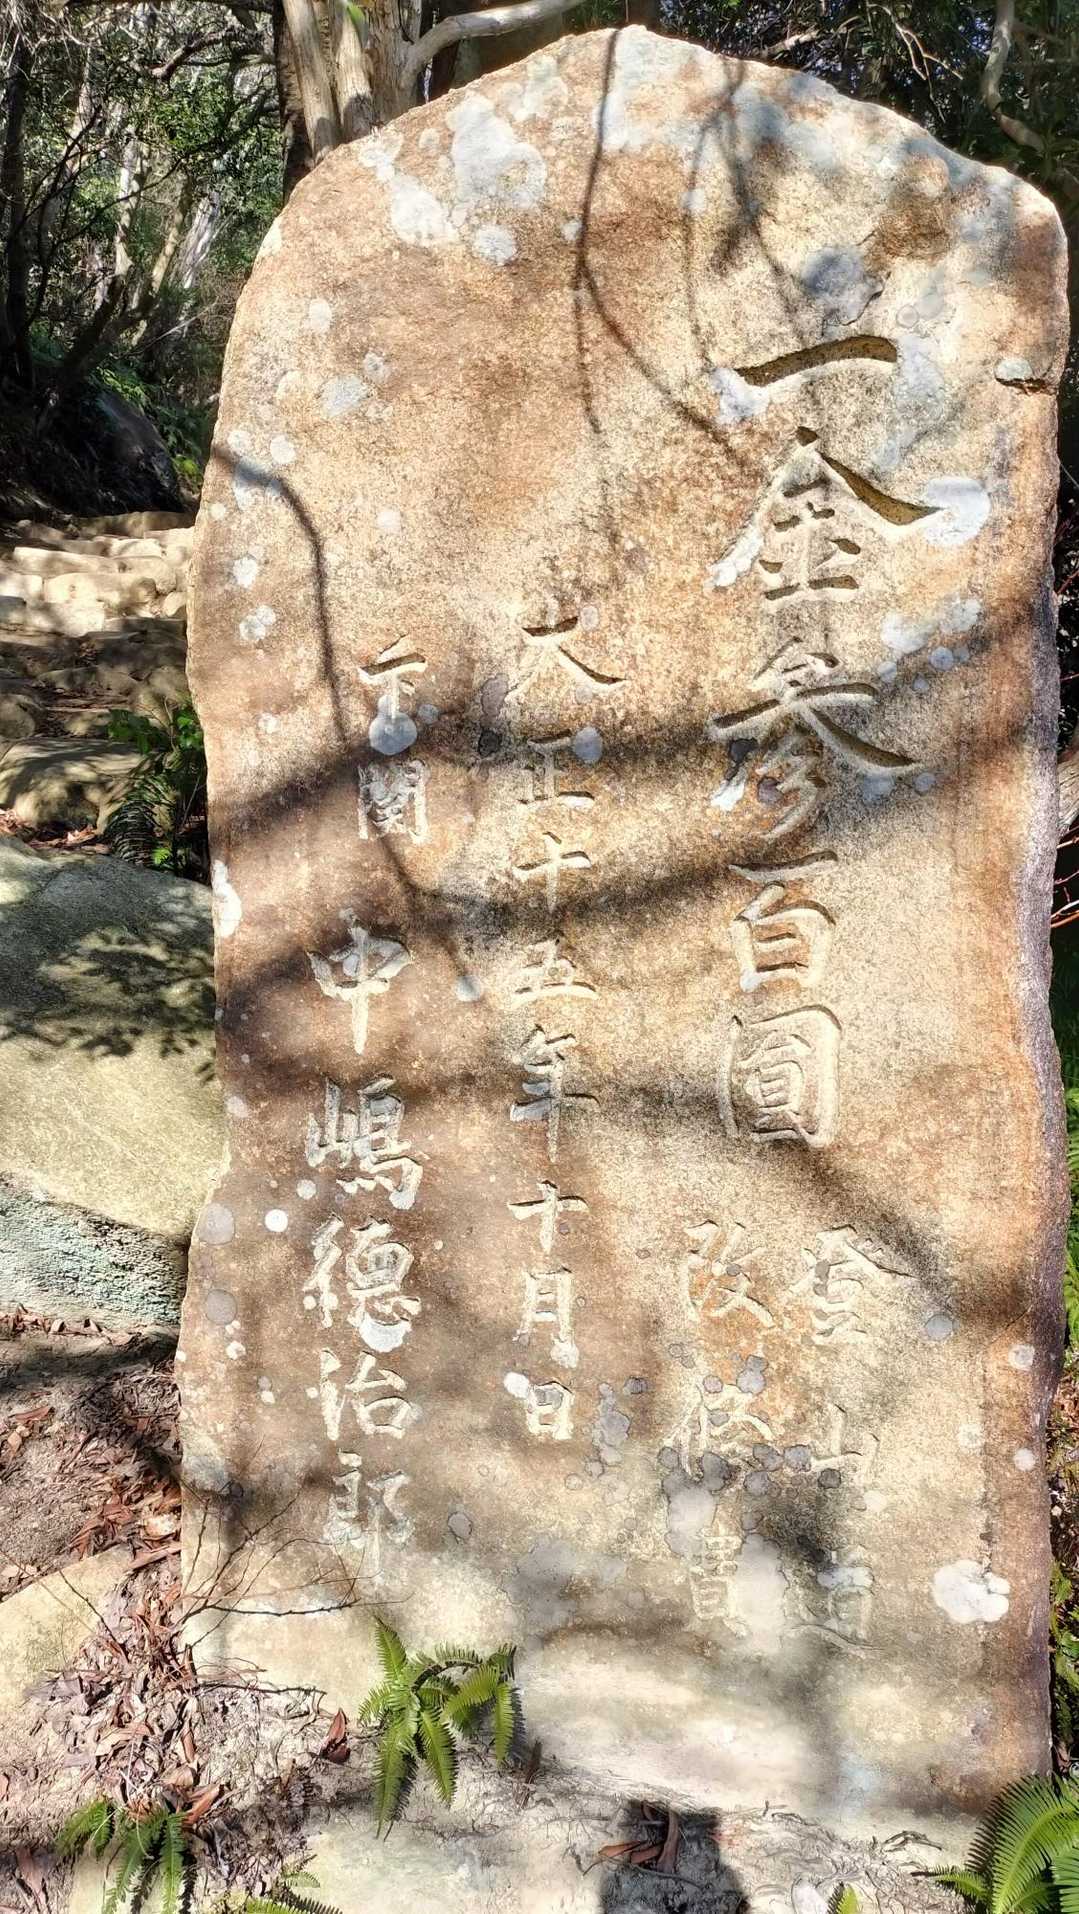 一金參百圓
登山道
改修費
大正十五年十月日
下関
中嶋德治郎